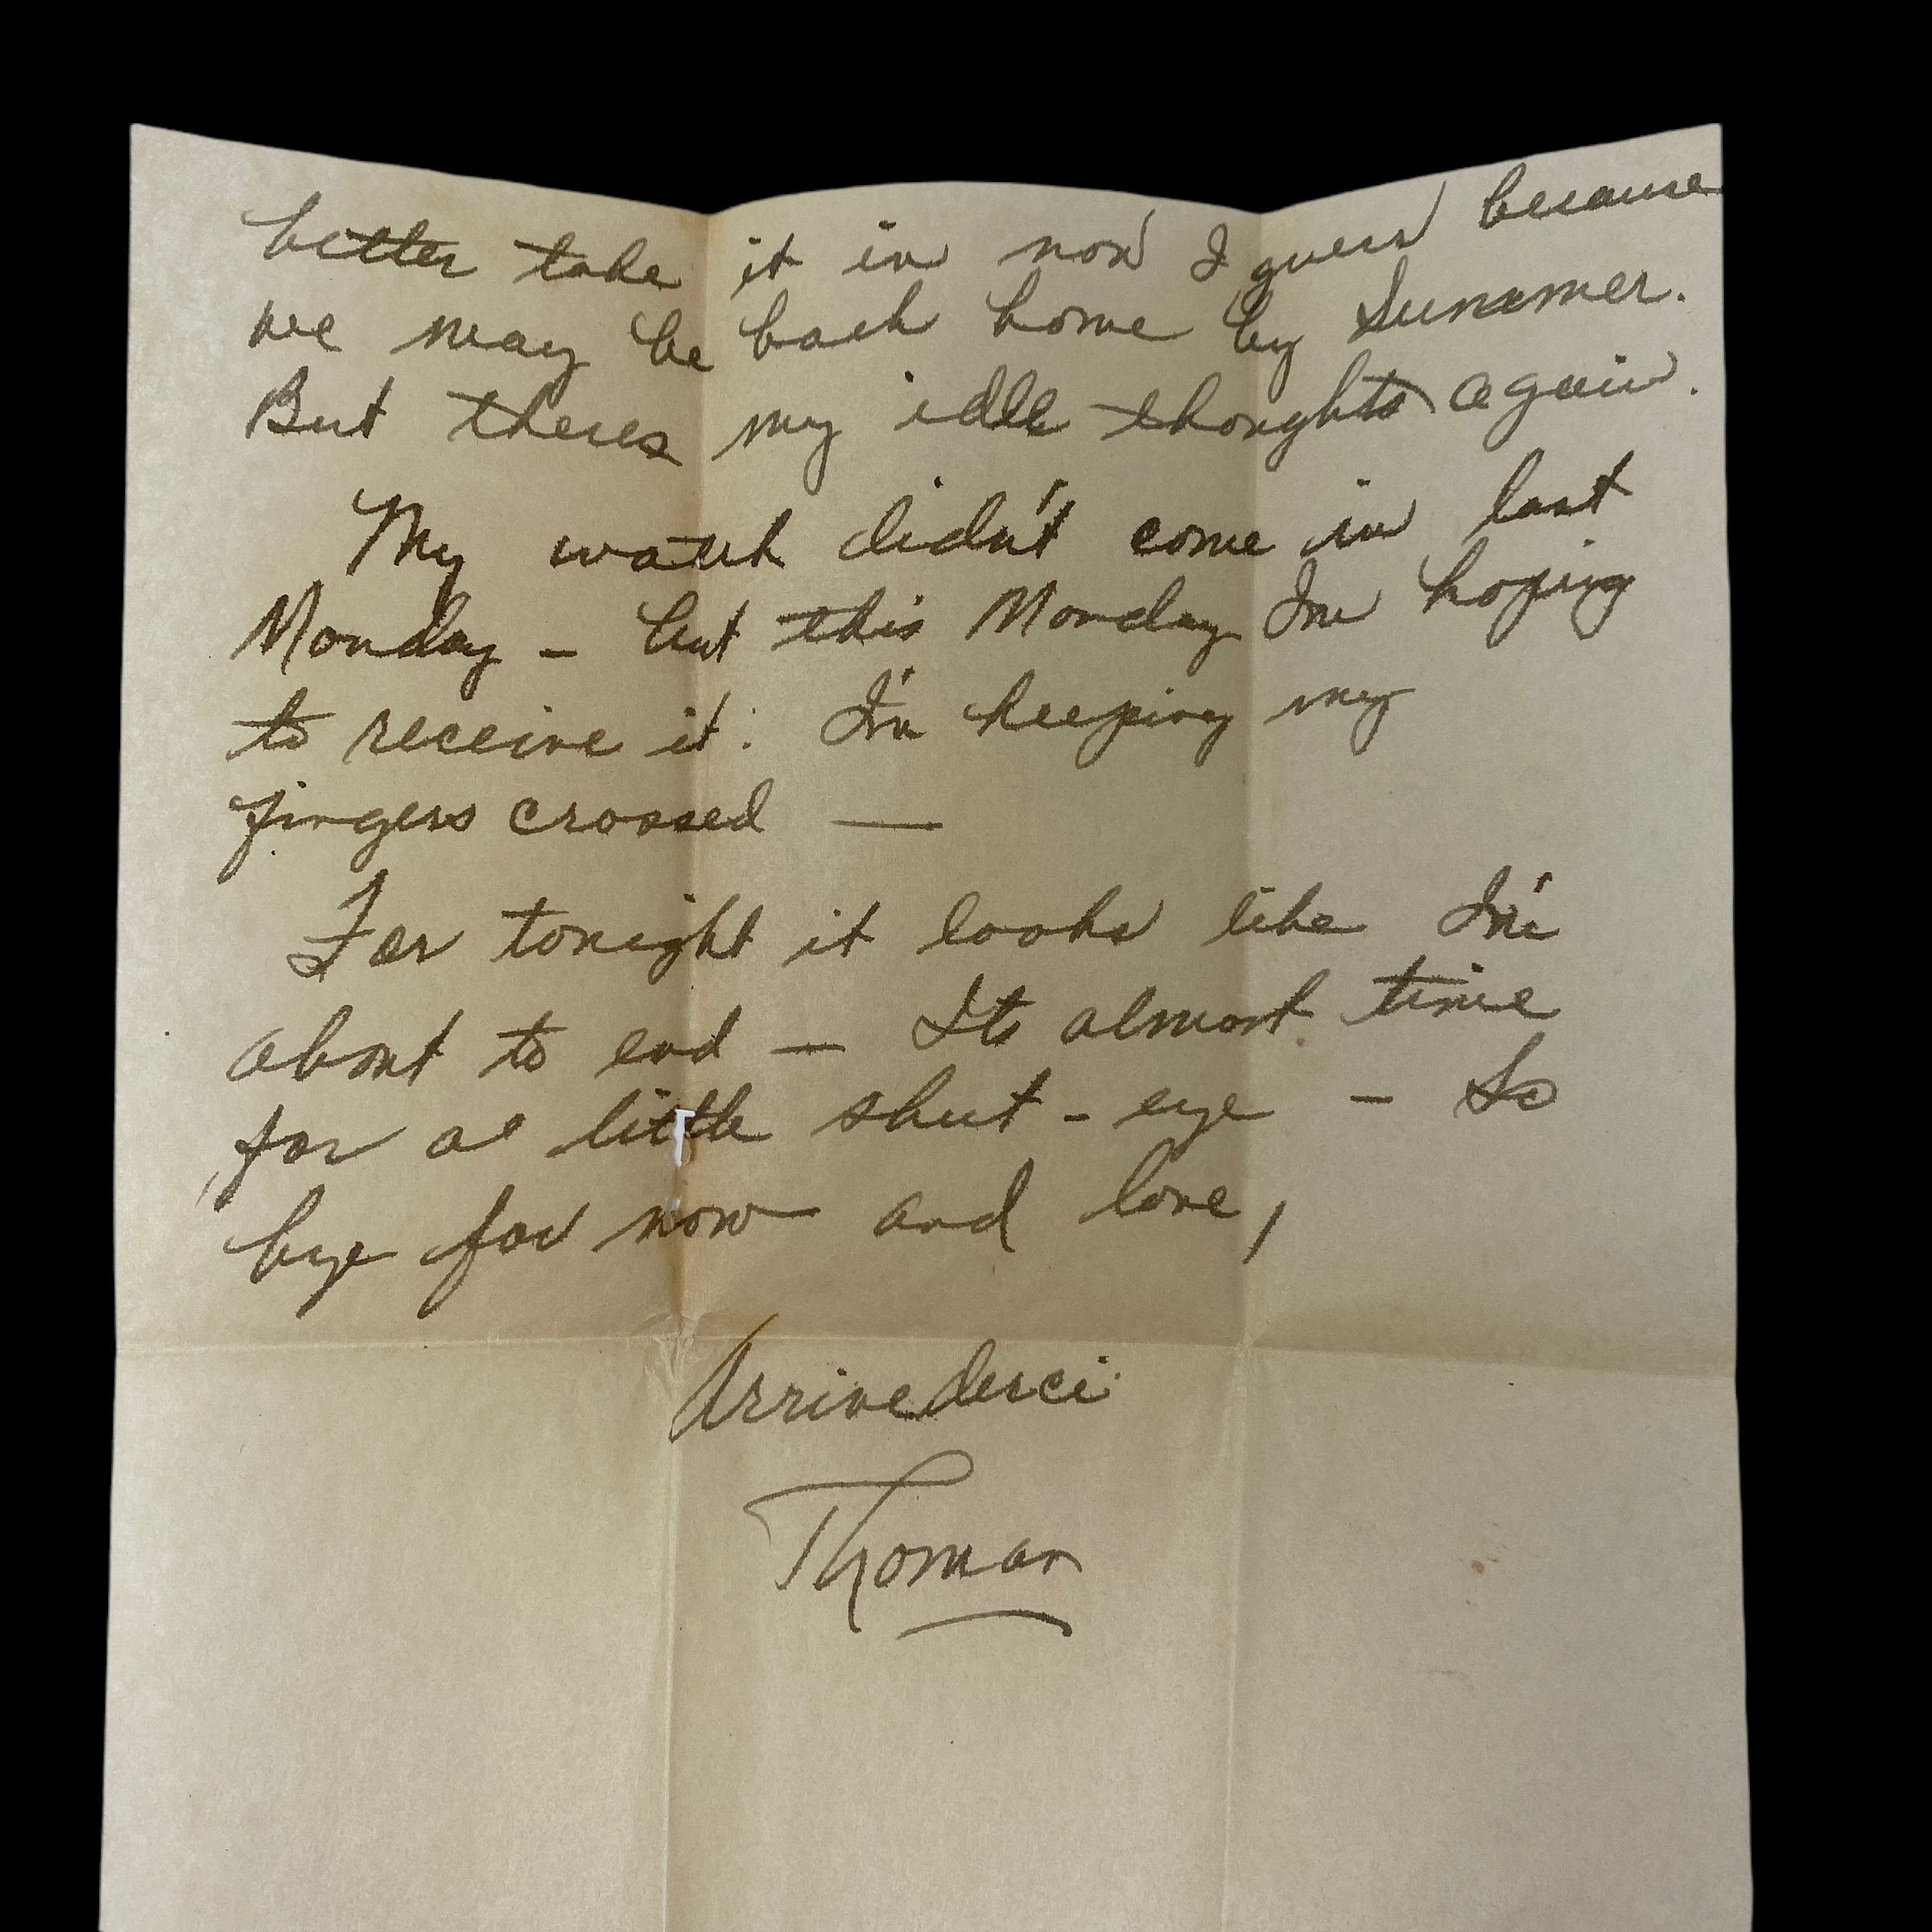 better take it in now I guess because
we may be back home by Summer.
But theres my idle thoughts again.
My watch didn't come in last
Monday – but this Monday Im hoping
to receive it. I'm keeping my
fingers crossed —
For tonight it looks like I'm
about to end — Its almost time
for a little shut-eye – So
bye for now and love,
Arrivederci
Thomas